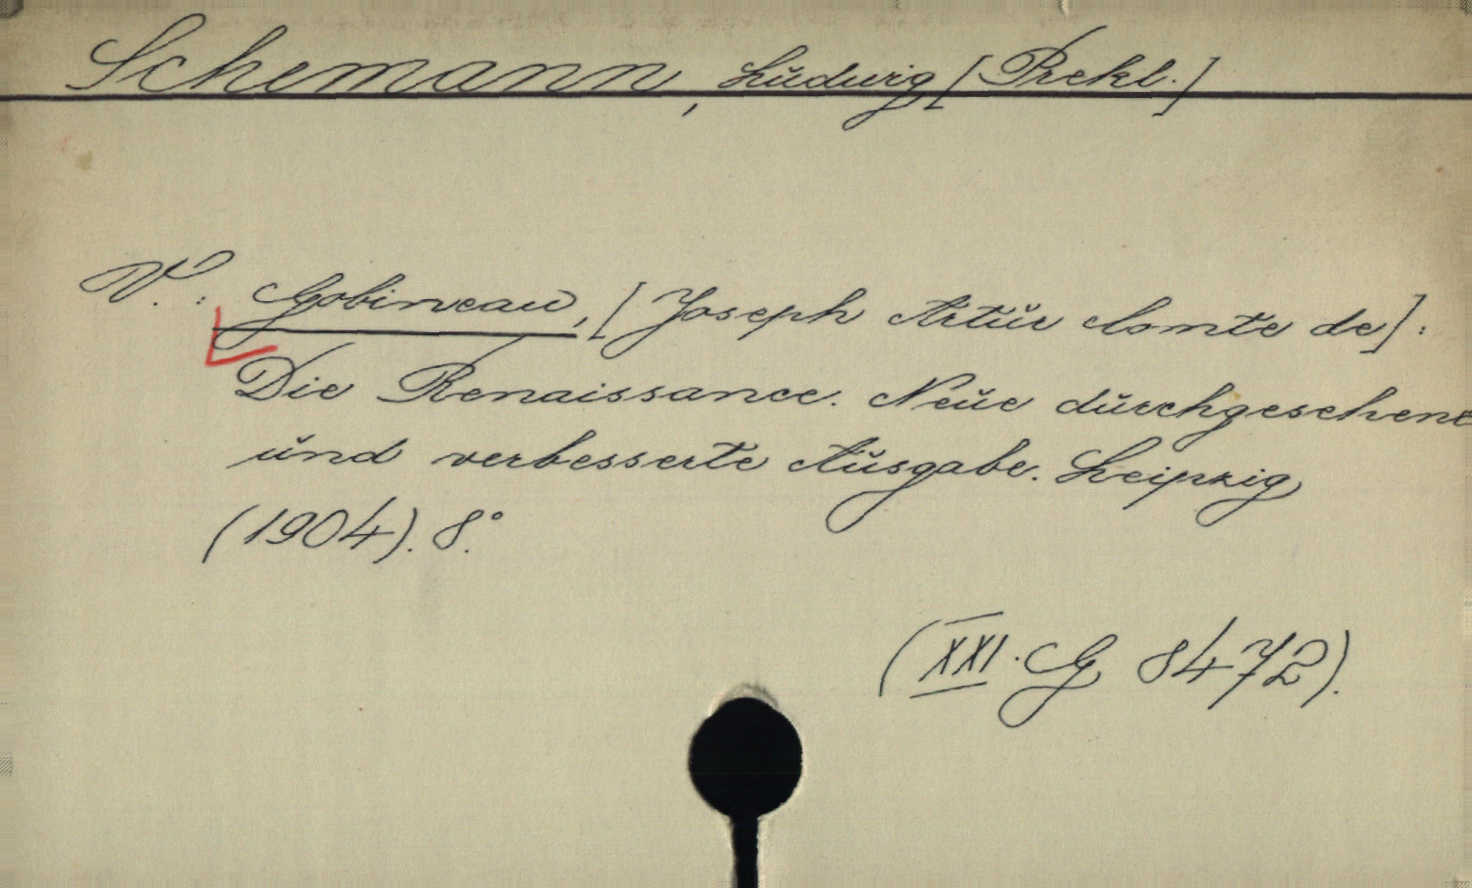 Schemann, Ludwig [Prekl.]
V.: Gobineau, [Joseph Artur Comte de]:
Die Renaissance. Neue durchgesehene
und verbesserte Ausgabe. Leipzig
(1904). 8°.
(XXI. G 8472).